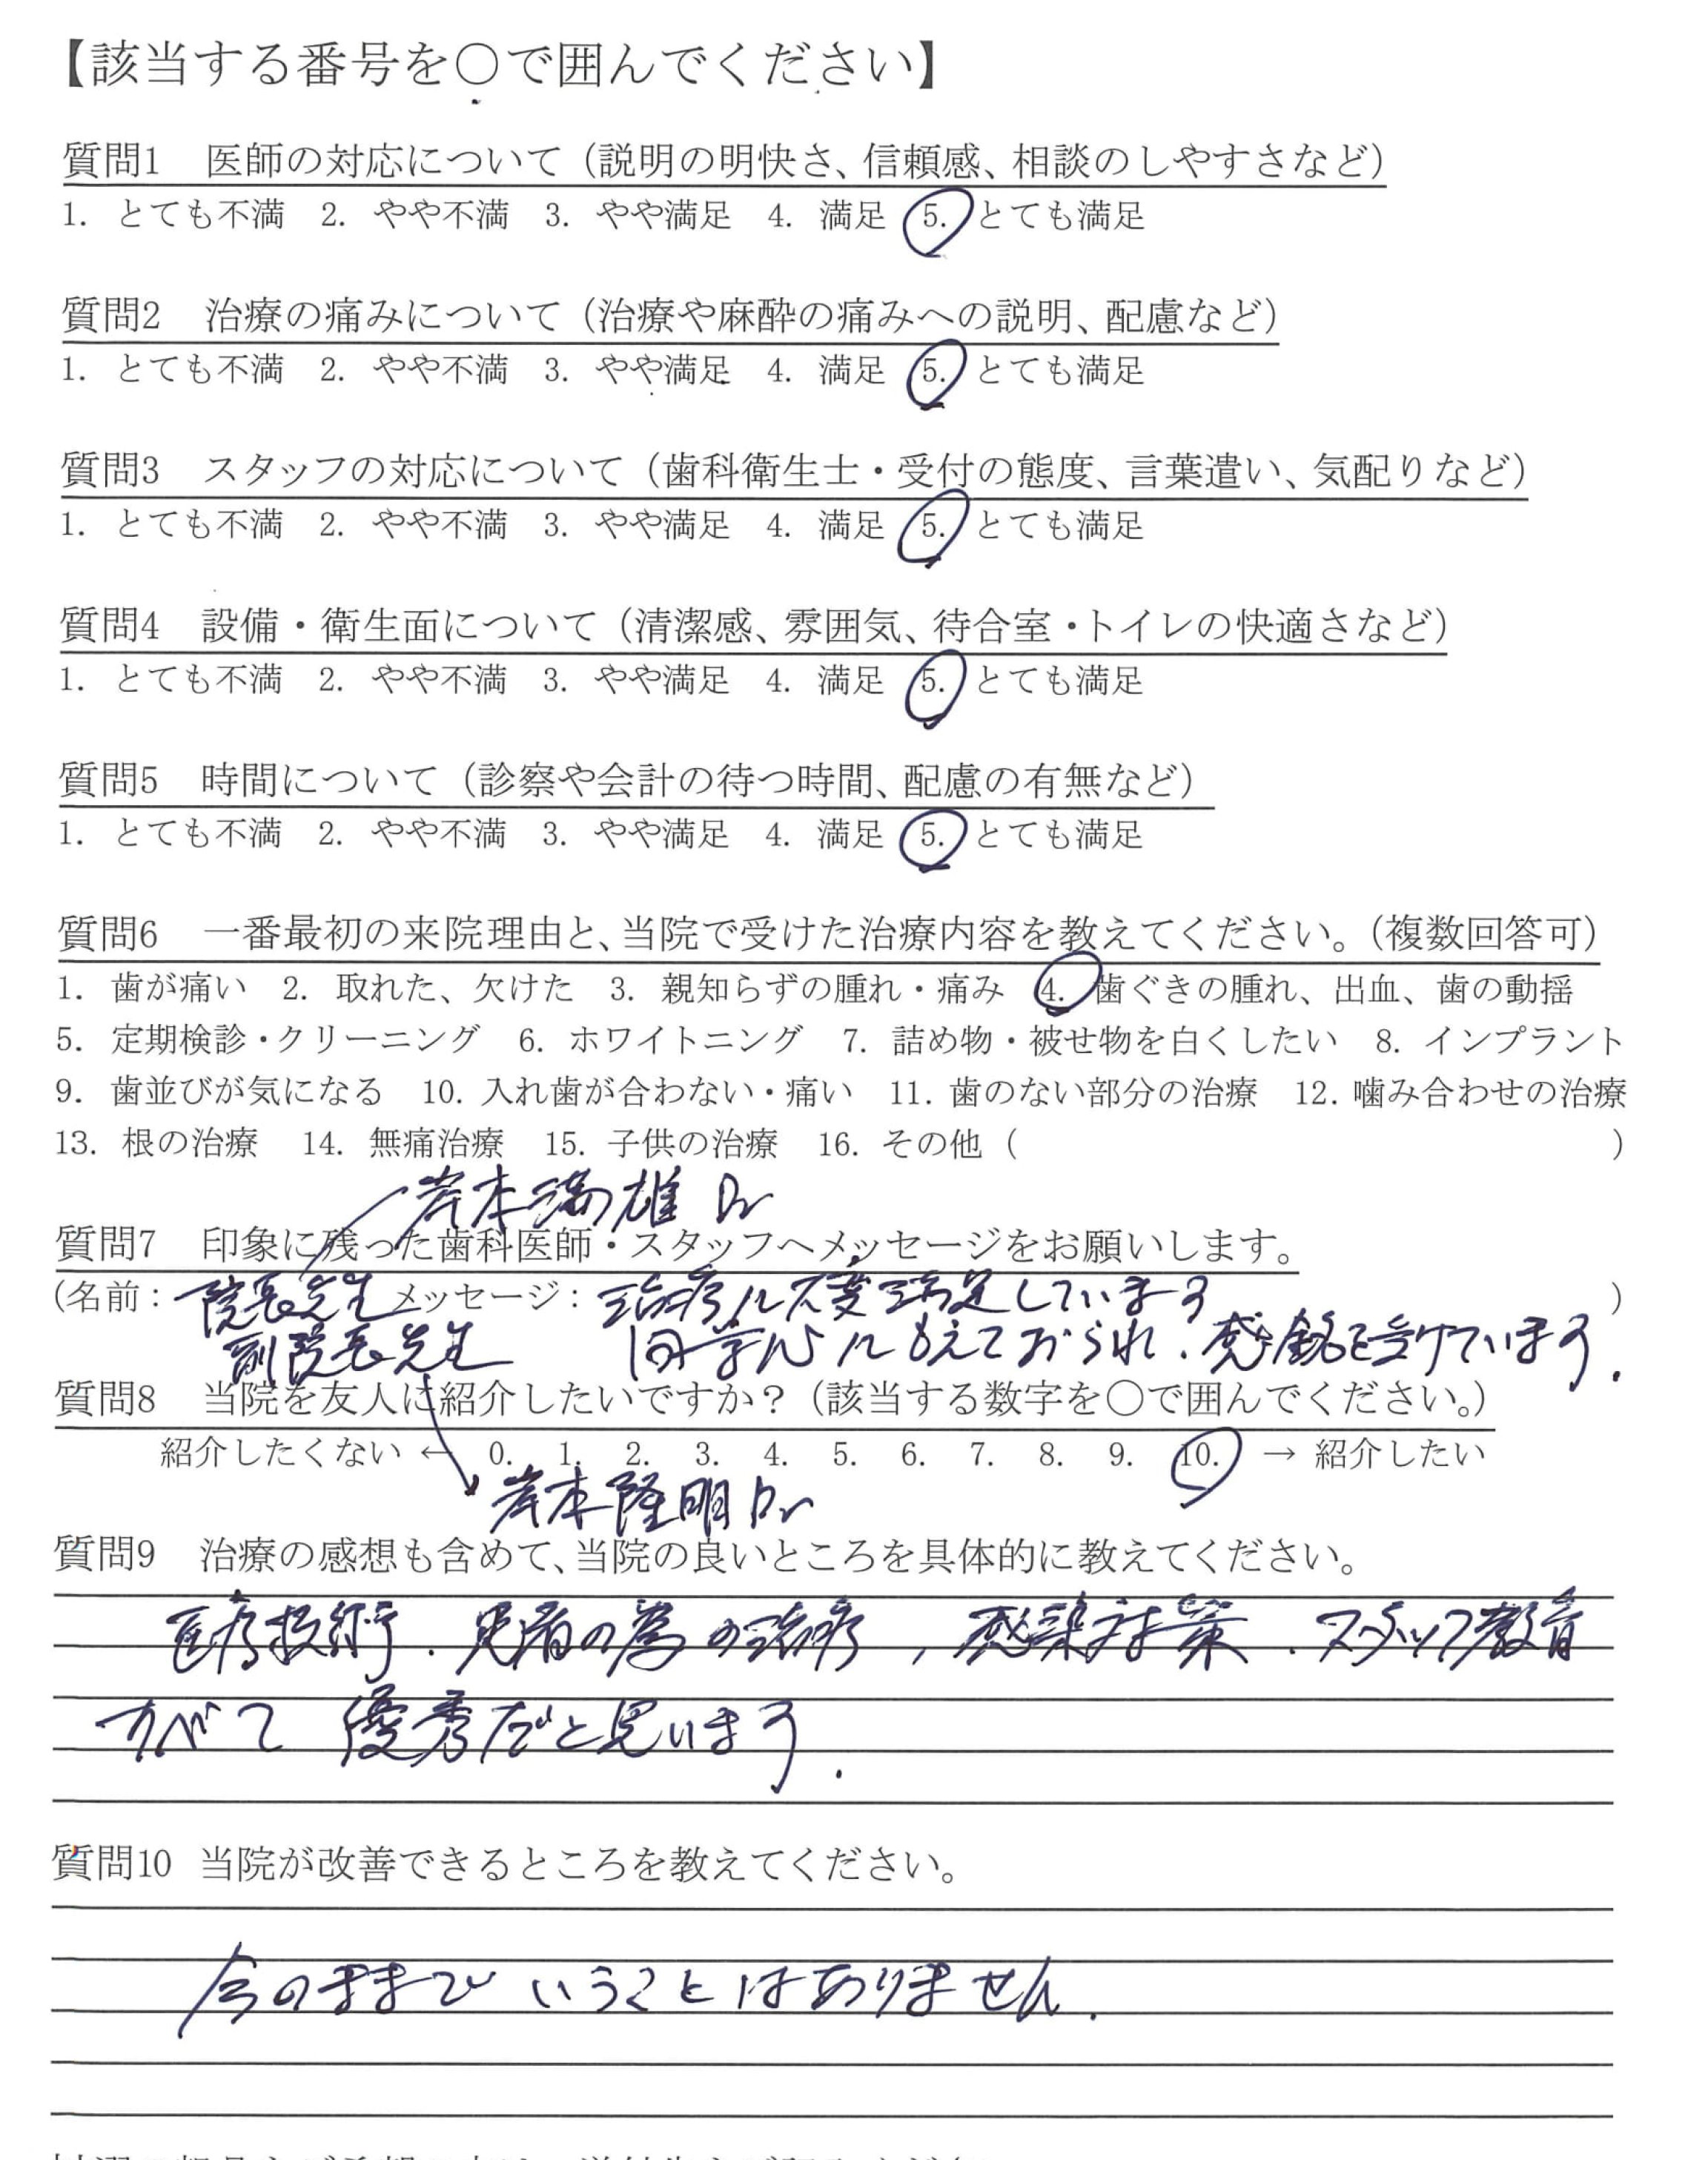 【該当する番号を○で囲んでください】
質問1 医師の対応について（説明の明快さ、信頼感、相談のしやすさなど）
1. とても不満 2. やや不満 3. やや満足 4. 満足 5. とても満足
質問2 治療の痛みについて（治療や麻酔の痛みへの説明、配慮など）
1. とても不満 2. やや不満 3. やや満足 4. 満足 5. とても満足
質問3 スタッフの対応について（歯科衛生士・受付の態度、言葉遣い、気配りなど）
1. とても不満 2. やや不満 3. やや満足 4. 満足 5. とても満足
質問4 設備・衛生面について（清潔感、雰囲気、待合室・トイレの快適さなど）
1. とても不満 2. やや不満 3. やや満足 4. 満足 5. とても満足
質問5 時間について（診察や会計の待つ時間、配慮の有無など）
1. とても不満 2. やや不満 3. やや満足 4. 満足 5. とても満足
質問6 一番最初の来院理由と、当院で受けた治療内容を教えてください。（複数回答可）
1. 歯が痛い 2. 取れた、欠けた 3. 親知らずの腫れ・痛み 4. 歯ぐきの腫れ、出血、歯の動揺
5. 定期検診・クリーニング 6. ホワイトニング 7. 詰め物・被せ物を白くしたい 8. インプラント
9. 歯並びが気になる 10. 入れ歯が合わない・痛い 11. 歯のない部分の治療 12. 噛み合わせの治療
13. 根の治療 14. 無痛治療 15. 子供の治療 16. その他（ ）
岸本満雄 Dr
質問7 印象に残った歯科医師・スタッフへメッセージをお願いします。
(名前：院長先生 メッセージ：治療に大変満足しています )
副院長先生 向学心にもえておられ、感銘を受けています.
質問8 当院を友人に紹介したいですか？（該当する数字を○で囲んでください。）
紹介したくない ← 0. 1. 2. 3. 4. 5. 6. 7. 8. 9. 10. → 紹介したい
岸本隆明 Dr
質問9 治療の感想も含めて、当院の良いところを具体的に教えてください。
医療技術、患者の為の治療、感染対策、スタッフ教育
すべて 優秀だと思います.
質問10 当院が改善できるところを教えてください。
今のままで いうことはありません.